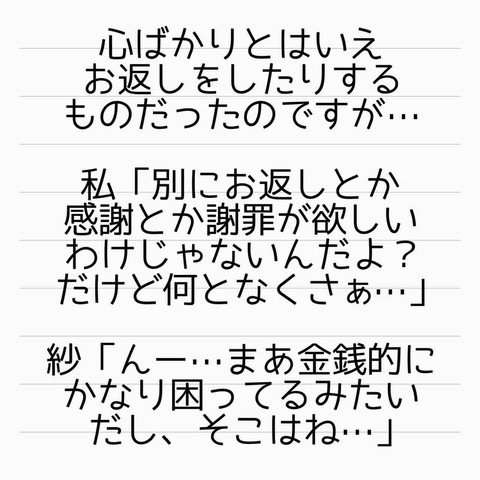 心ばかりとはいえ
お返しをしたりする
ものだったのですが…
私「別にお返しとか
感謝とか謝罪が欲しい
わけじゃないんだよ?
だけど何となくさぁ…」
紗「んー…まあ金銭的に
かなり困ってるみたい
だし、そこはね…」